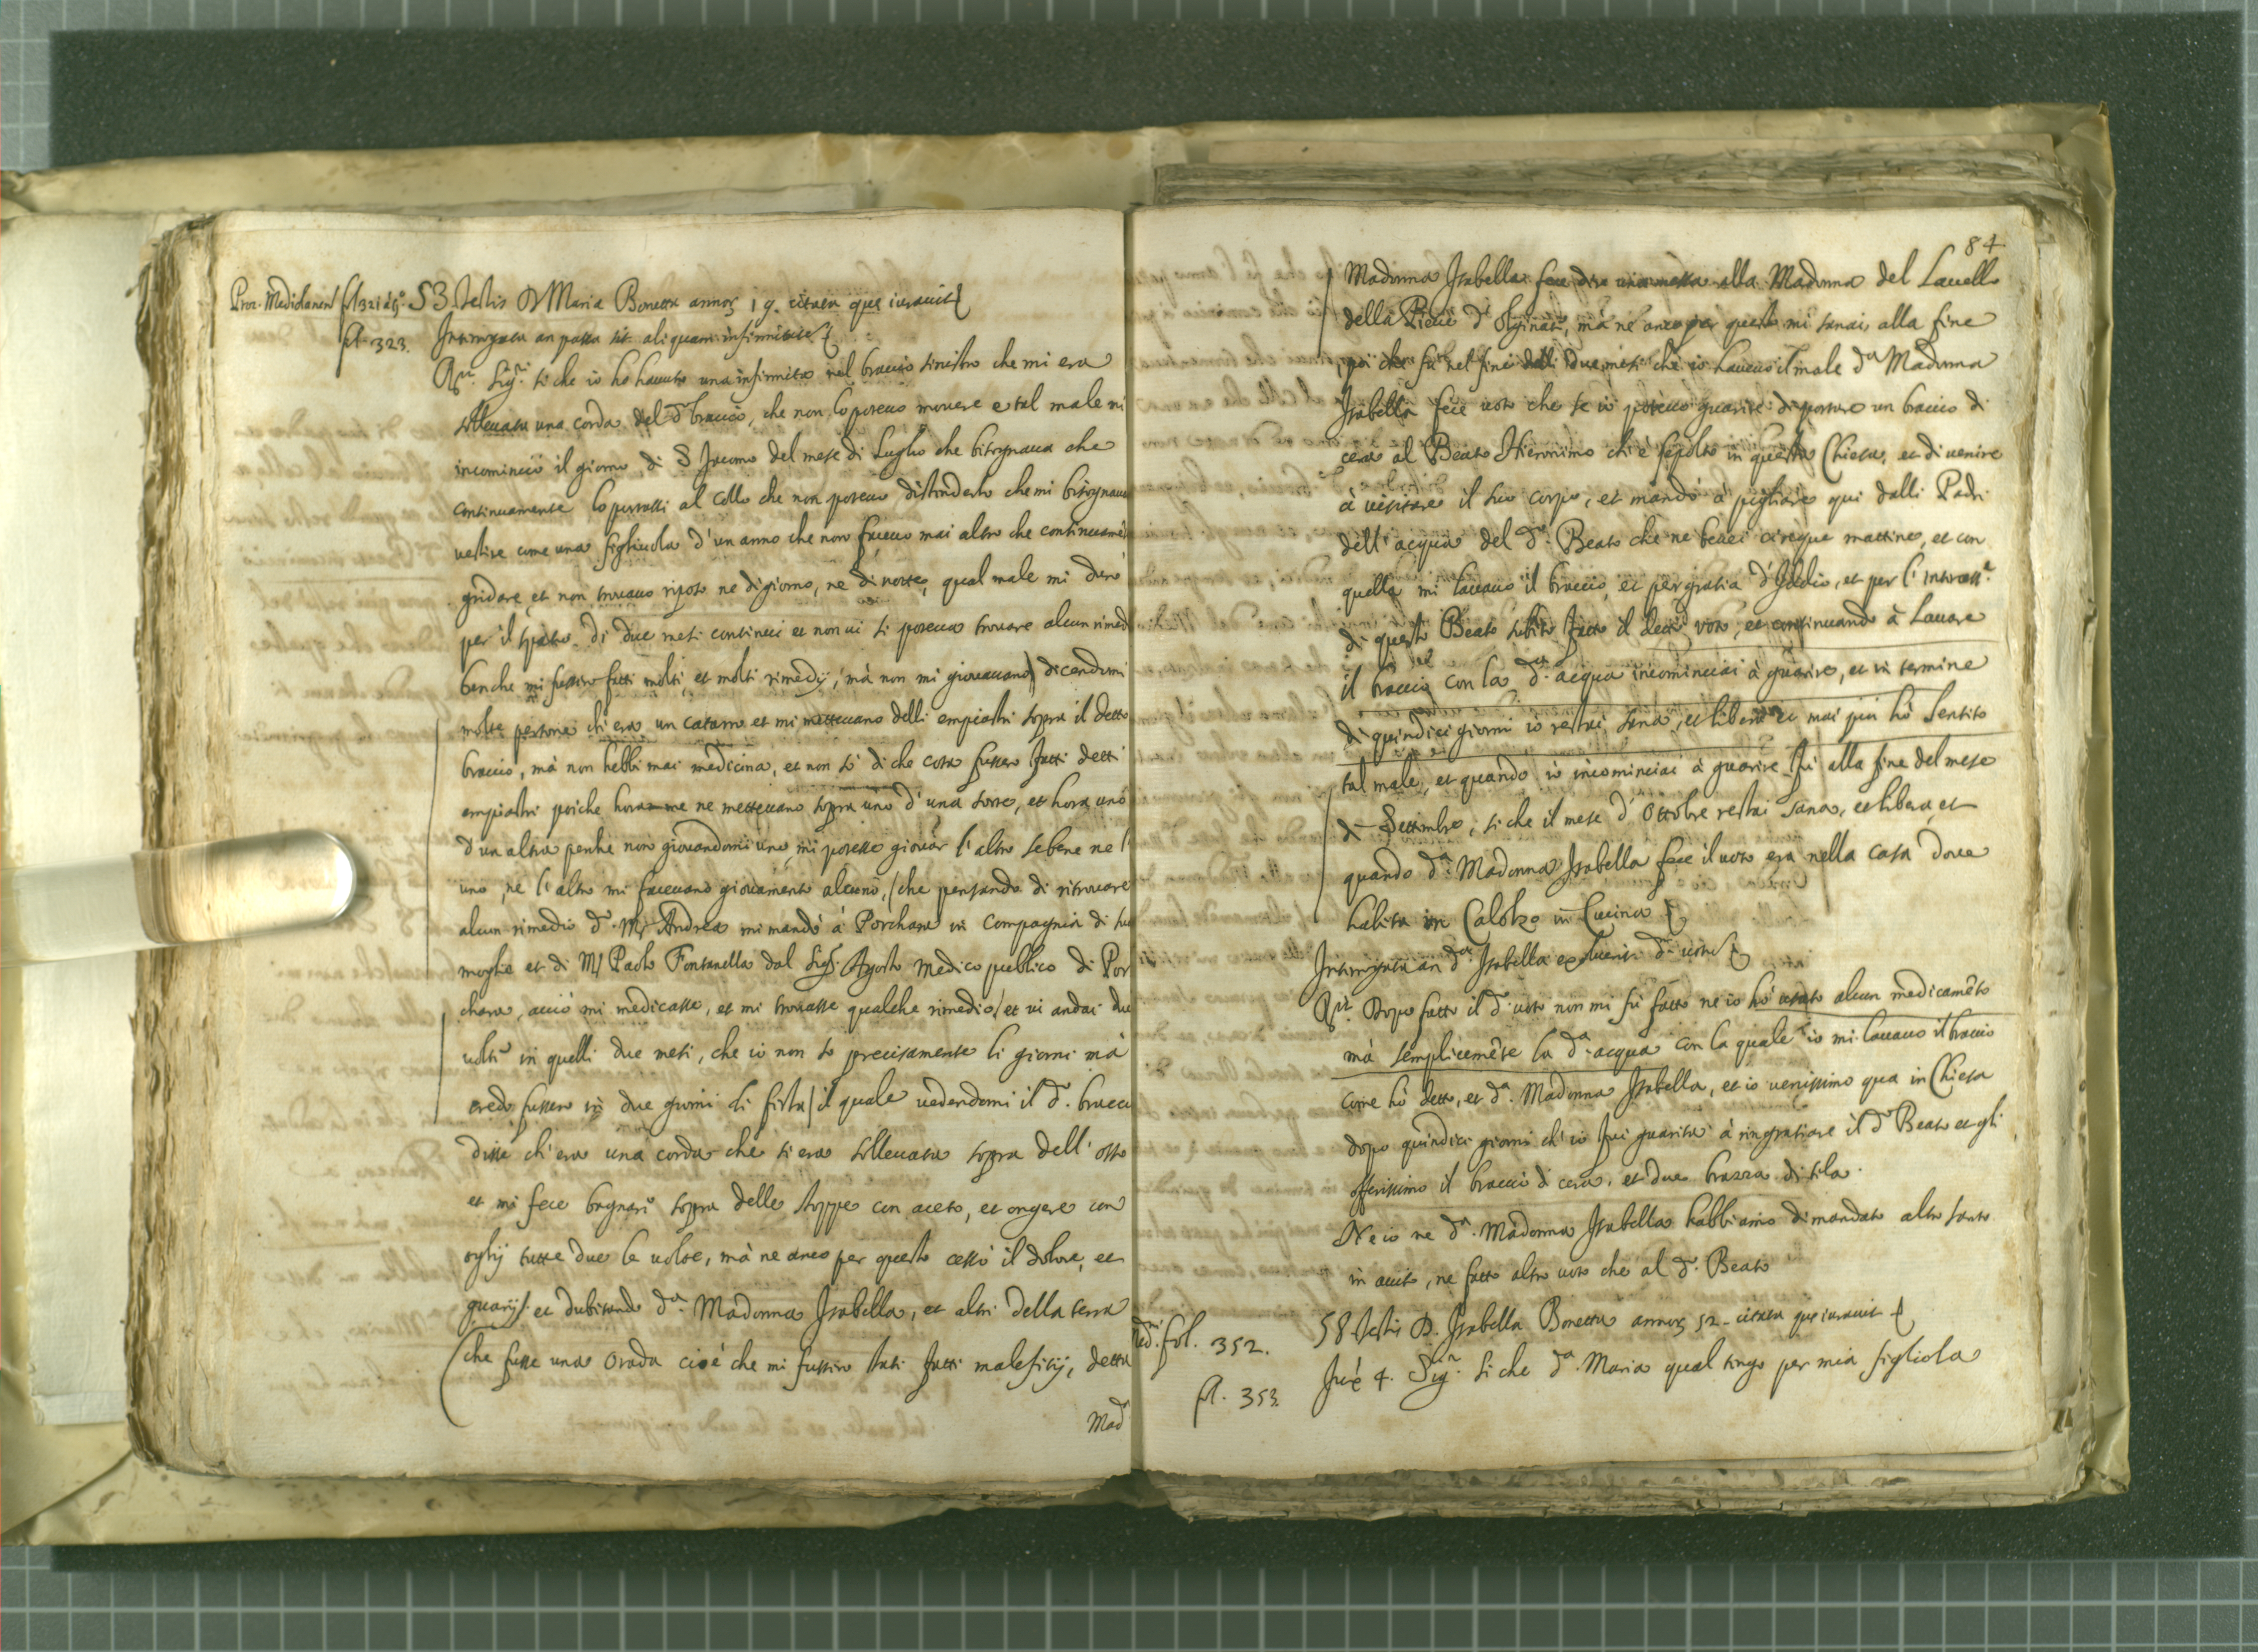 Proc. Mediolanen fol 321 à tgo. 53. Testis D Maria Bonetta annoꝝ 19. citata que iurauit
fol. 323. Interrogata an passa sit aliquam infirmitatem
Rt. Sigr. si che io ho hauuto una infirmita nel braccio sinistro che mi era
solleuata una corda del do braccio, che non lo poteuo mouere e tal male mi
incominciò il giorno di S Jacomo del mese di Luglio che bisognaua che
continuamente lo portassi al collo che non poteuo distenderlo che mi bisognaua
vestire come una figliuola d'un anno che non faceuo mai altro che continuamēte
gridare et non trouauo riposo ne di giorno, ne di notte, qual male mi durò
per il spatio di due mesi continui et non ui si poteua trouare alcun rimed
benche mi fussero fatti molti, et molti rimedij, mà non mi giouauano) dicendomi
molte persone ch'era un cataro et mi metteuano delli empiastri sopra il detto
braccio, mà non hebbi mai medicina, et non sò di che cosa fussero fatti detti
empiastri poiche hora me ne metteuano sopra uno d'una sorte, et hora uno
d'un altra perche non giouandomi uno, mi potesse giouar l'altro sebene ne l'
uno, ne l'altro mi faceuano giouamento alcuno, (che pensando di ritrouare
alcun rimedio do. Mr Andrea mi mandò à Porchara in compagnia di sua
moglie et di Mr Paolo Fontanella dal Sigr. Agosto Medico publico di Por
chara, acciò mi medicasse, et mi trouasse qualche rimedio/ et ui andai due
uolte in quelli due mesi, che io non so precisamente li giorni mà
credo fussero in due giorni di festa) il quale uedendomi il do. bracci
disse ch'era una corda che si era solleuata sopra dell'osso
et mi fece bagnare sopra delle stoppe con aceto, et ongere con
oglij tutte due le uolte, mà ne anco per questo cessò il dolore, et
guarij. et dubitando da. Madonna Isabella, et altri della terra
che fusse una orada cioè che mi fussero stati fatti malefitij, detta
Mada
84
Madonna Isabella fece dire una messa alla Madonna del Lauello
della Pieue d'Olginate, mà ne anco per questo mi sanai, alla fine
poi che fù nel fine delli due mesi che io haueuo il male da Madonna
Isabella fece uoto che se io poteuo guarire di portare un braccio di
cera al Beato Hieronimo ch'è sepolto in questa Chiesa, et di uenire
à visitare il suo corpo, et mandò à pigliare qui dalli Padri
dell'acqua del do. Beato che ne beuei cinque mattine, et con
quella mi lauauo il braccio, et per gratia d'Iddio, et per l'intercessne
di questo Beato subito fatto il detto voto, et continuando à lauare
il braccio con la da. acqua incominciai à guarire, et in termine
di quindici giorni io restai sana, et libera et mai più hò sentito
tal male, et quando io incominciai à guarire fù alla fine del mese
di Settembre, si che il mese d'Ottobre restai sana, et libera, et
quando da. Madonna Isabella fece il uoto era nella casa doue
habita in Calolzo in Cucina
Interrogata an da Isabella
Rt. Dopo fatto il do. uoto non mi fù fatto ne io hò usato alcun medicamēto
mà semplicemēte la da. acqua con la quale io mi lauauo il braccio
come hò detto, et da. Madonna Isabella, et io uenissimo qua in Chiesa
dopo quindici giorni ch'io fui guarita à ringratiare il do Beato et gli
offerissimo il braccio di cera, et due brazza di tela.
Ne io ne da. Madonna Isabella habbiamo dimandato altro santo
in aiuto, ne fatto altro uoto che al do. Beato
fol. 352. 58. Testis D. Isabella Bonetta annoꝝ 52. citata que iurauit
fol. 353. 4. Sigr. si che da. Maria qual tengo per mia figliola